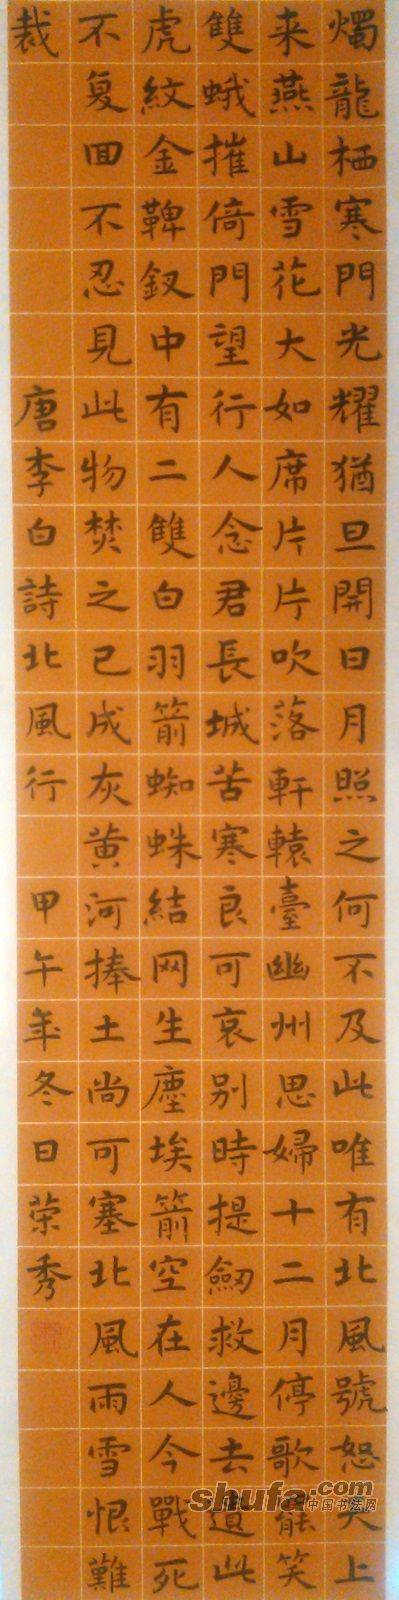 燭龍栖寒門光耀猶旦開日月照之何不及此唯有北風號怒天上
来燕山雪花大如席片片吹落軒轅臺幽州思婦十二月停歌罷笑
雙蛾摧倚門望行人念君長城苦寒良可哀別時提劒救邊去遺此
虎紋金鞞釵中有二雙白羽箭蜘蛛結网生塵埃箭空在人今戰死
不复回不忍見此物焚之已成灰黄河捧土尚可塞北風雨雪恨難
裁
唐李白詩北風行
甲午年冬日荣秀
shufa.com
中国书法网